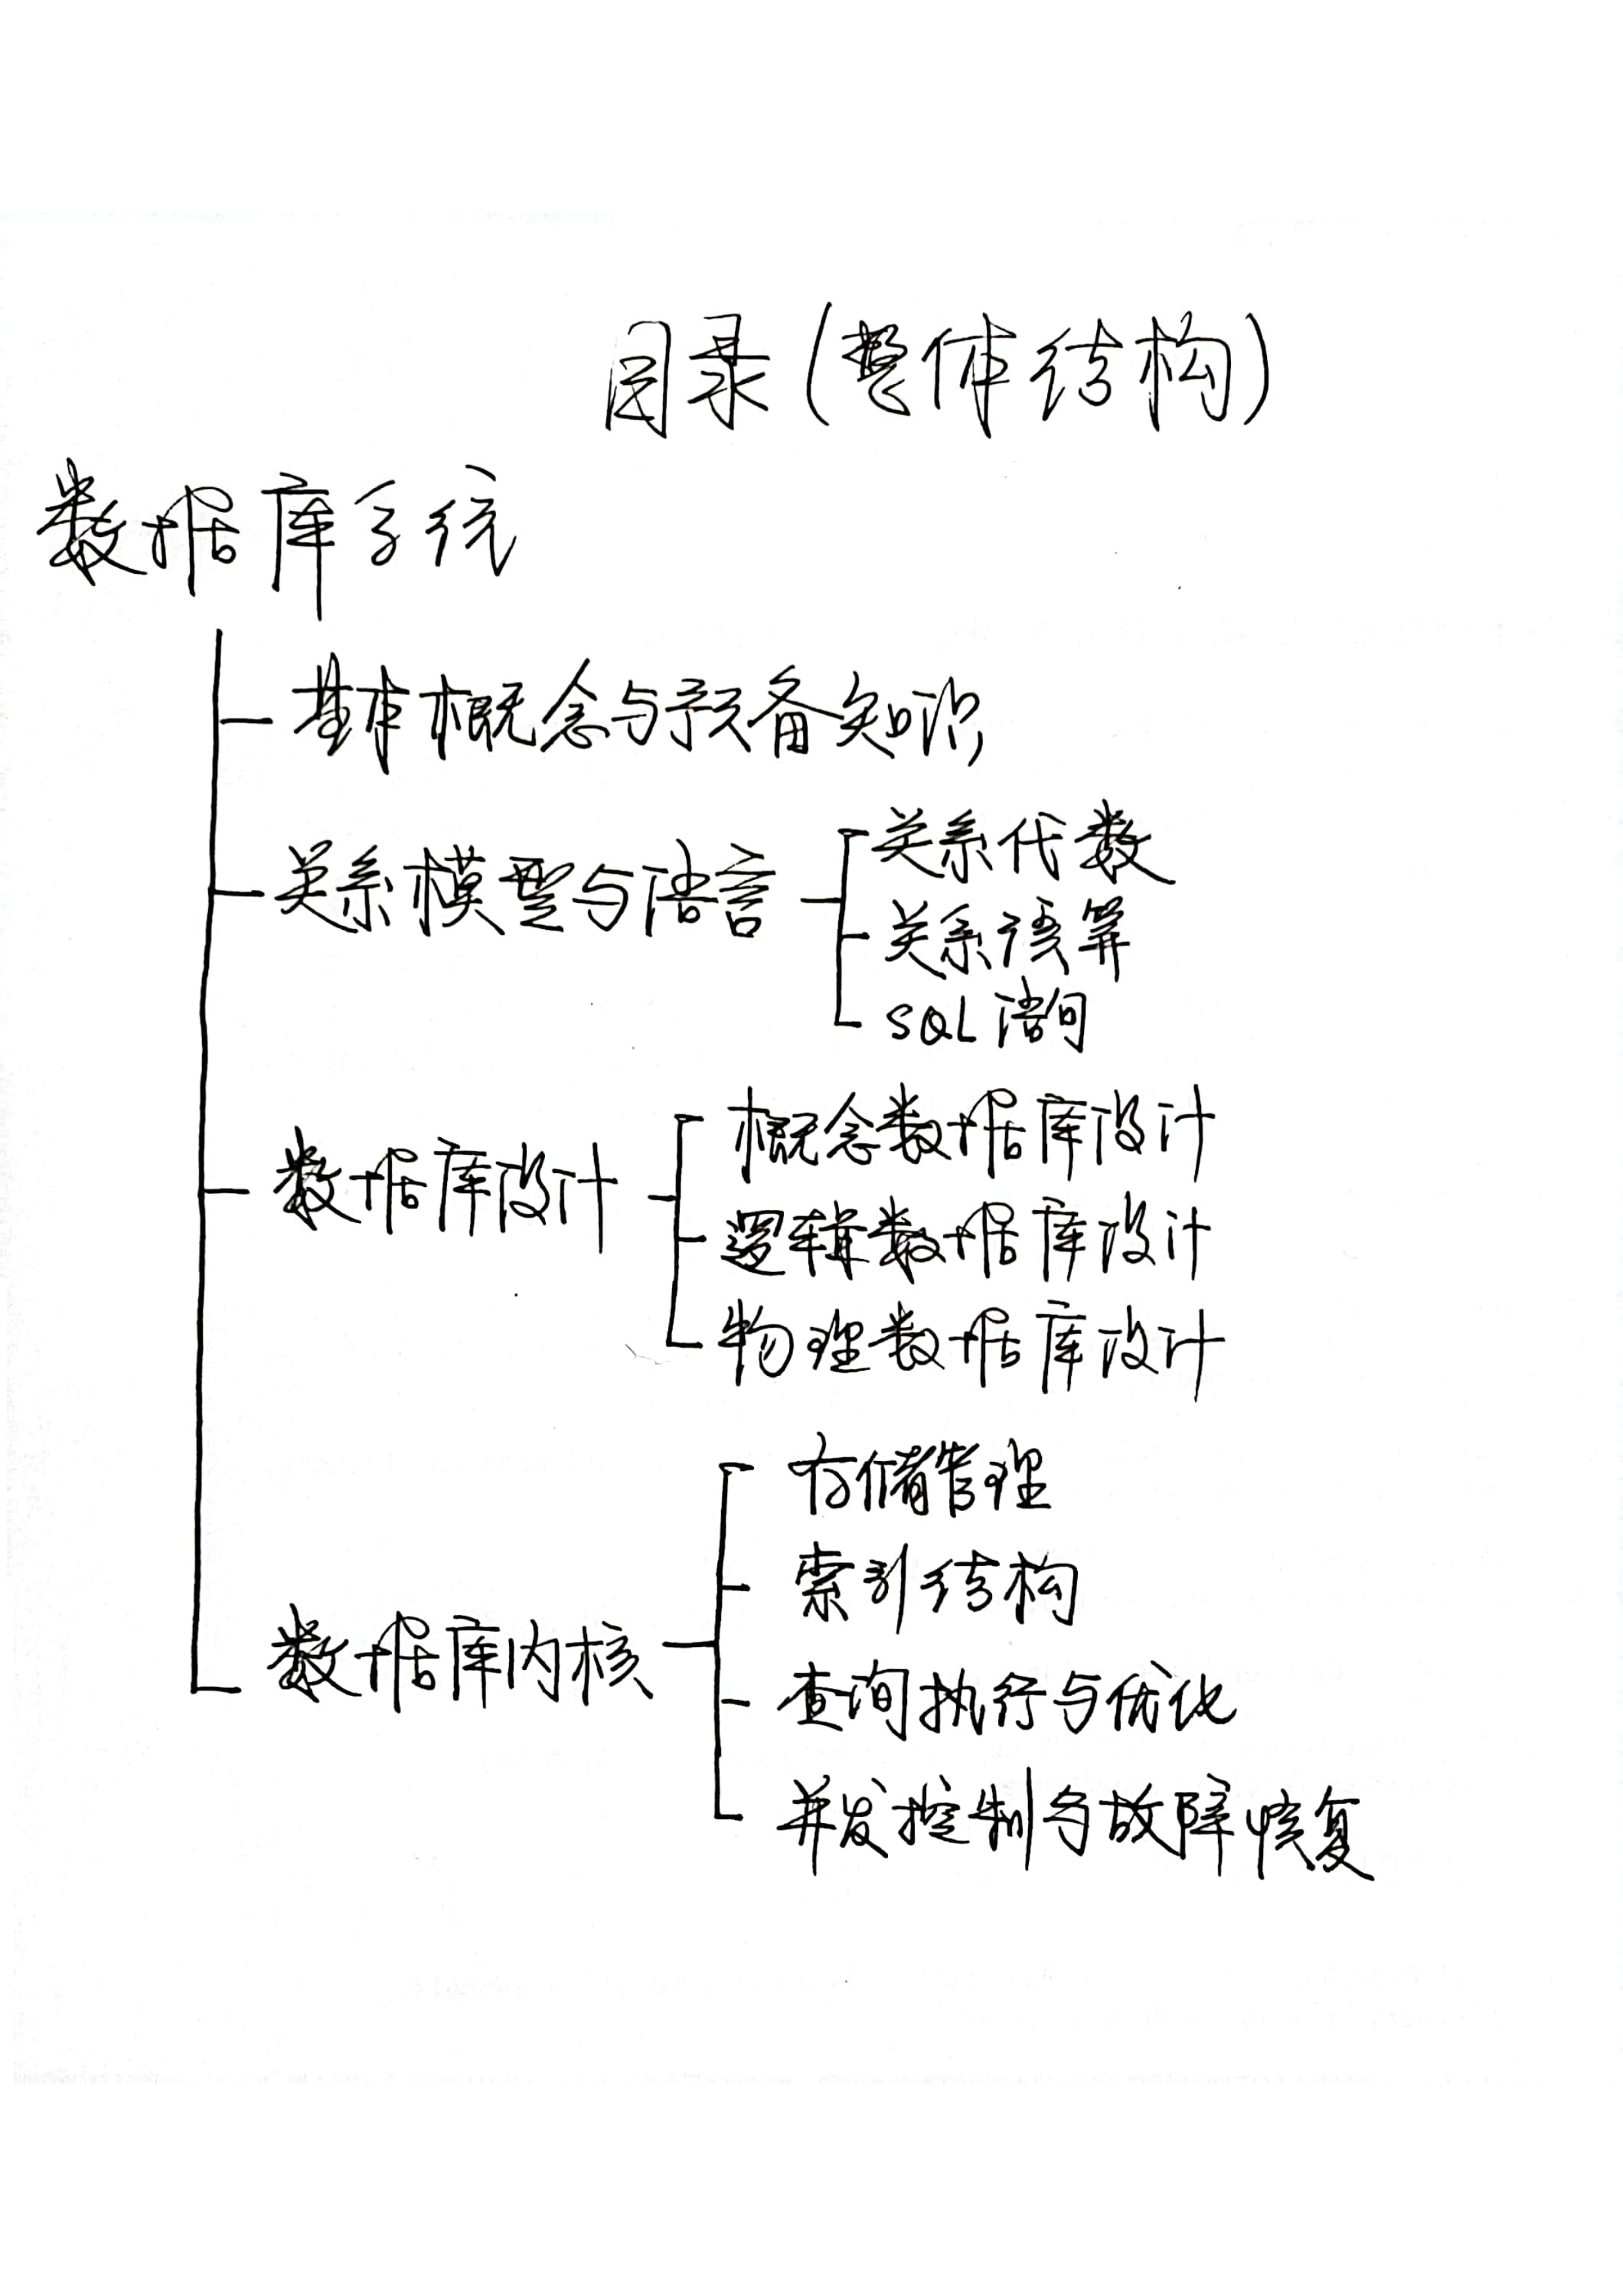 目录(整体结构)
数据库系统
基本概念与预备知识
关系模型与语言
关系代数
关系演算
SQL语句
数据库设计
概念数据库设计
逻辑数据库设计
物理数据库设计
数据库内核
存储管理
索引结构
查询执行与优化
并发控制与故障恢复